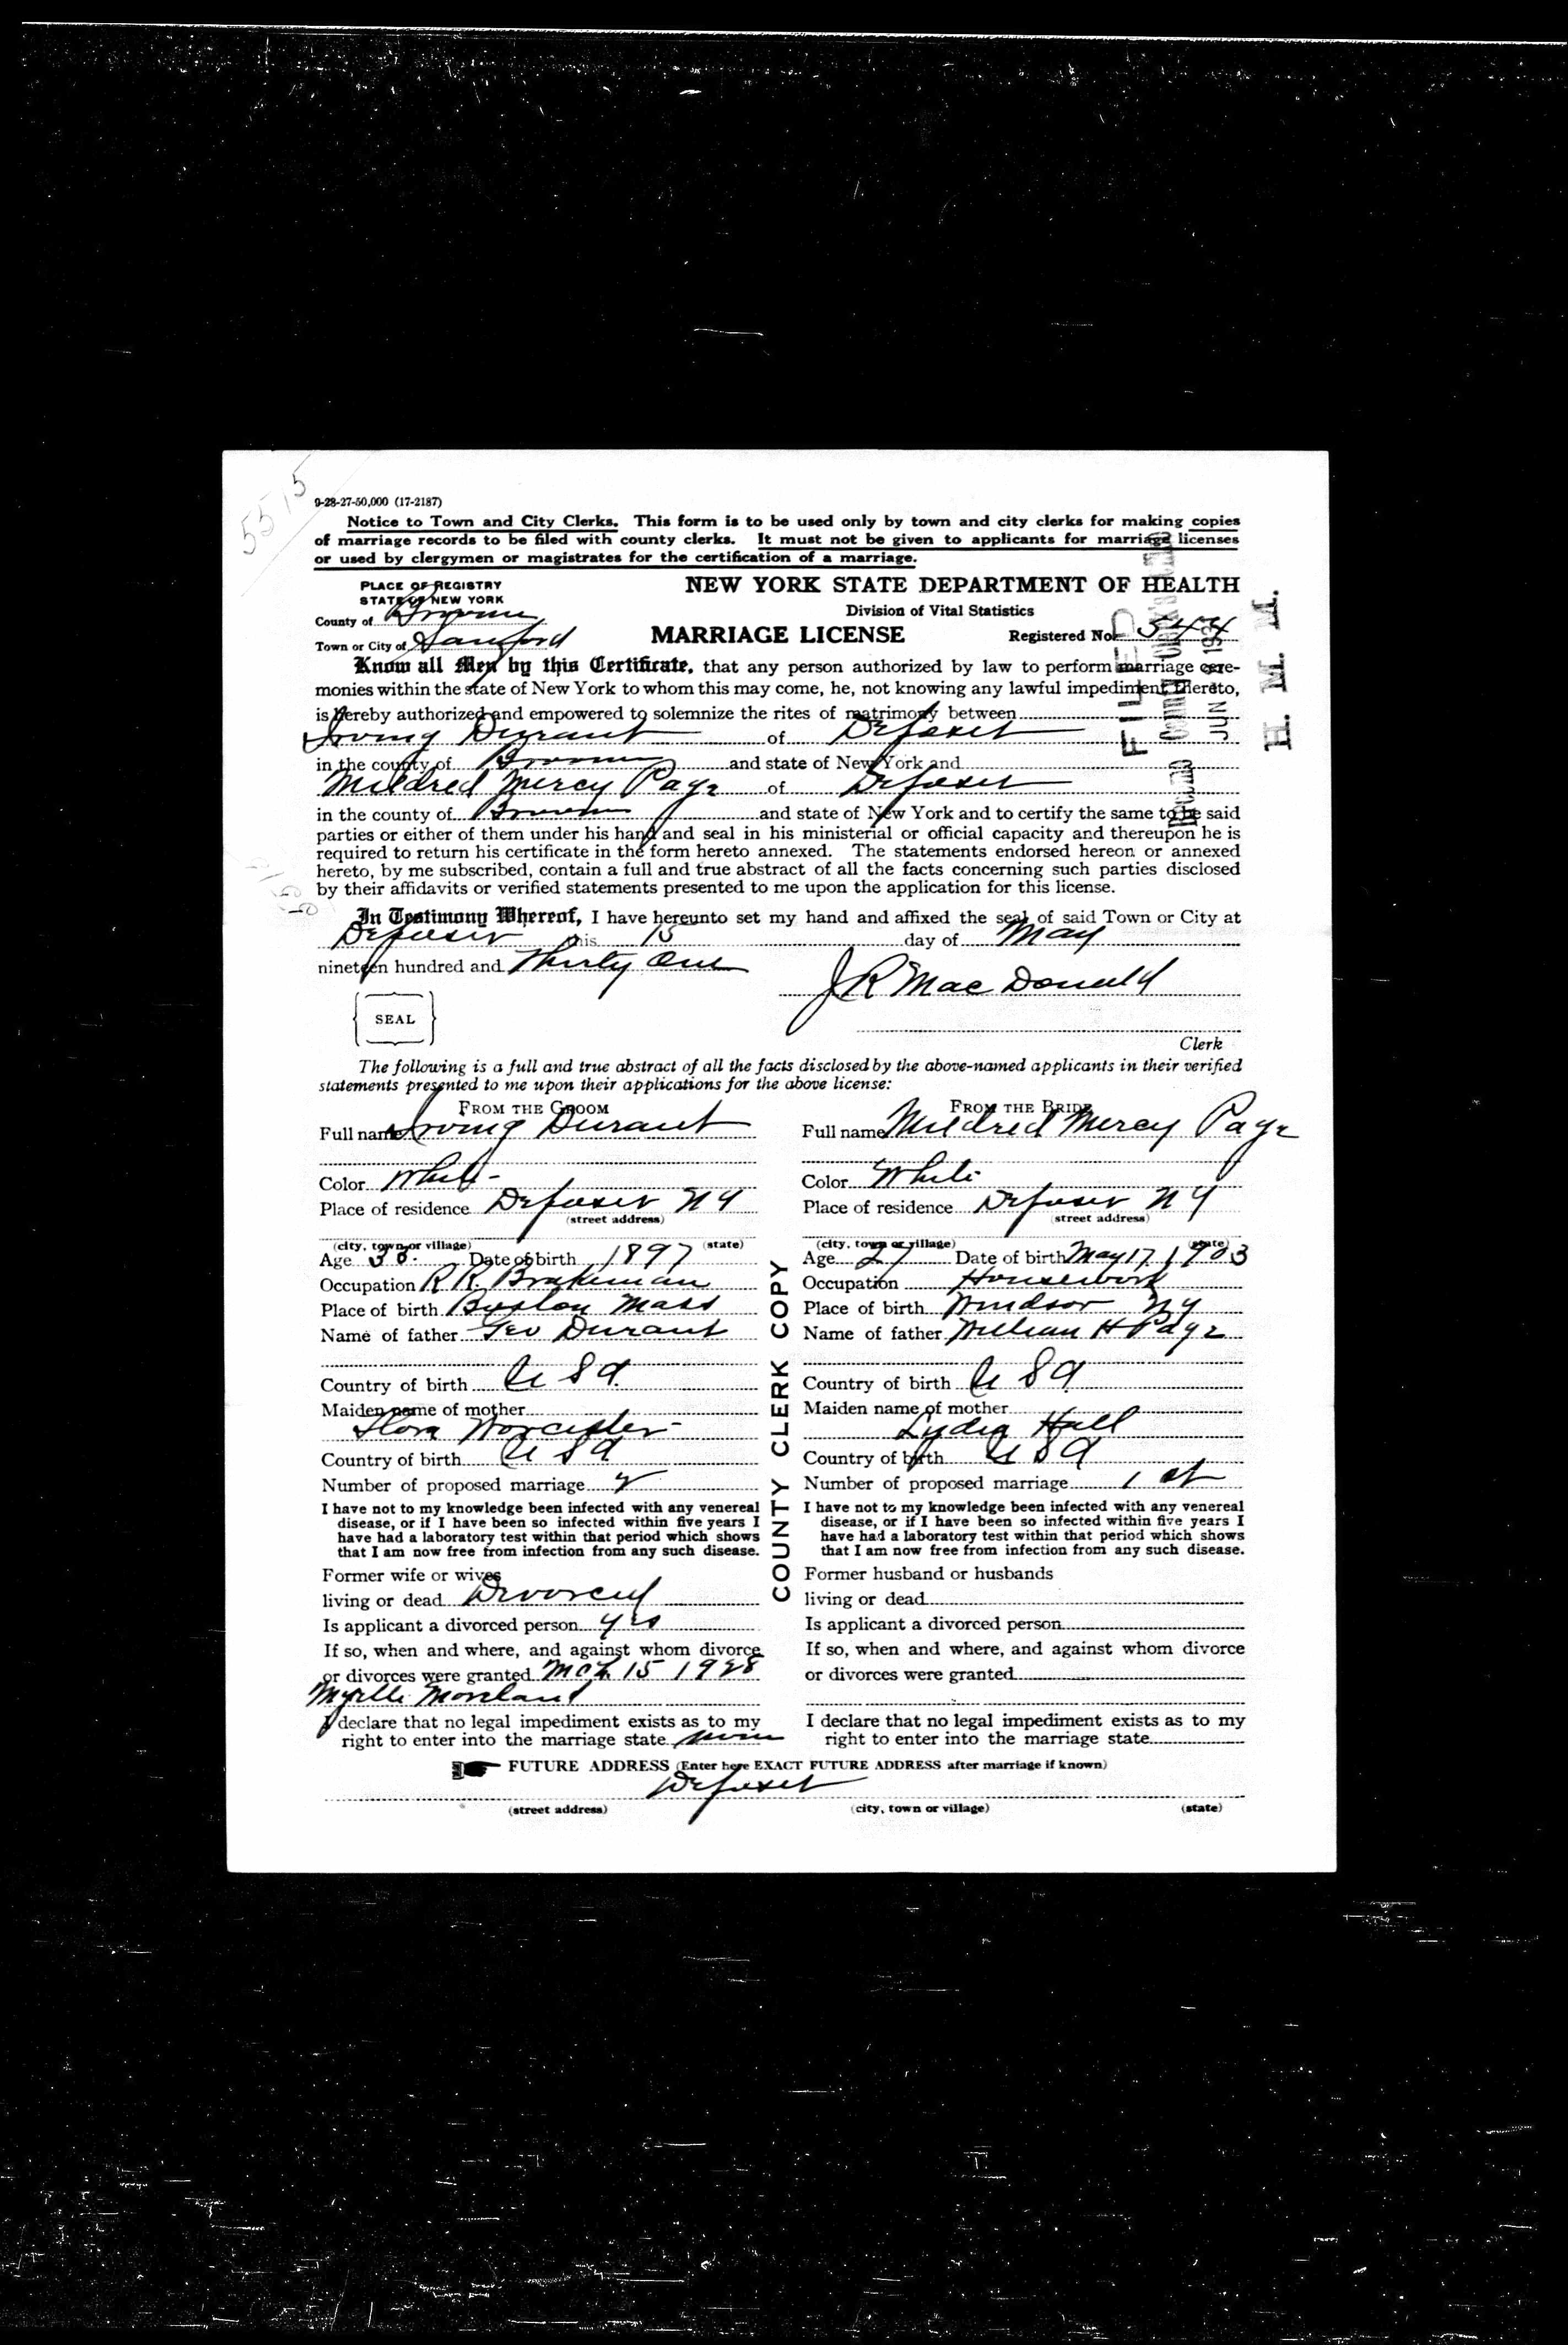 5515
9-28-27-50,000 (17-2187)
Notice to Town and City Clerks. This form is to be used only by town and city clerks for making copies
of marriage records to be filed with county clerks. It must not be given to applicants for marriage licenses
or used by clergymen or magistrates for the certification of a marriage.
PLACE OF REGISTRY
STATE OF NEW YORK
County of Broome
Town or City of Sanford
NEW YORK STATE DEPARTMENT OF HEALTH
Division of Vital Statistics
MARRIAGE LICENSE
Registered No. 544
FILED
JUN
H. M. M.
Know all Men by this Certificate, that any person authorized by law to perform marriage cere-
monies within the state of New York to whom this may come, he, not knowing any lawful impediment thereto,
is hereby authorized and empowered to solemnize the rites of matrimony between
Irving Durant of Deposit
in the county of Broome and state of New York and
Mildred Mercy Page of Deposit
in the county of Broome and state of New York and to certify the same to be said
parties or either of them under his hand and seal in his ministerial or official capacity and thereupon he is
required to return his certificate in the form hereto annexed. The statements endorsed hereon or annexed
hereto, by me subscribed, contain a full and true abstract of all the facts concerning such parties disclosed
by their affidavits or verified statements presented to me upon the application for this license.
In Testimony Whereof, I have hereunto set my hand and affixed the seal of said Town or City at
Deposit this 15 day of May
nineteen hundred and Thirty One
J R MacDonald
SEAL
Clerk
The following is a full and true abstract of all the facts disclosed by the above-named applicants in their verified
statements presented to me upon their applications for the above license:
FROM THE GROOM
Full name Irving Durant
Color White
Place of residence Deposit N Y
(street address)
(city, town or village) (state)
Age Date of birth 1897
Occupation R.R. Brakeman
Place of birth Boston Mass
Name of father Geo Durant
Country of birth U S A
Maiden name of mother
Flora Worcester
Country of birth U S A
Number of proposed marriage 2
I have not to my knowledge been infected with any venereal
disease, or if I have been so infected within five years I
have had a laboratory test within that period which shows
that I am now free from infection from any such disease.
Former wife or wives
living or dead Divorced
Is applicant a divorced person yes
If so, when and where, and against whom divorce
or divorces were granted Mch 15 1928
Myrtle Moreland
I declare that no legal impediment exists as to my
right to enter into the marriage state none
COUNTY CLERK COPY
FROM THE BRIDE
Full name Mildred Mercy Page
Color White
Place of residence Deposit N Y
(street address)
(city, town or village) (state)
Age 27 Date of birth May 17 1903
Occupation Housework
Place of birth Windsor NY
Name of father William H Page
Country of birth U S A
Maiden name of mother
Lydia Hall
Country of birth U S A
Number of proposed marriage 1 st
I have not to my knowledge been infected with any venereal
disease, or if I have been so infected within five years I
have had a laboratory test within that period which shows
that I am now free from infection from any such disease.
Former husband or husbands
living or dead
Is applicant a divorced person
If so, when and where, and against whom divorce
or divorces were granted
I declare that no legal impediment exists as to my
right to enter into the marriage state
FUTURE ADDRESS (Enter here EXACT FUTURE ADDRESS after marriage if known)
Deposit
(street address) (city, town or village) (state)